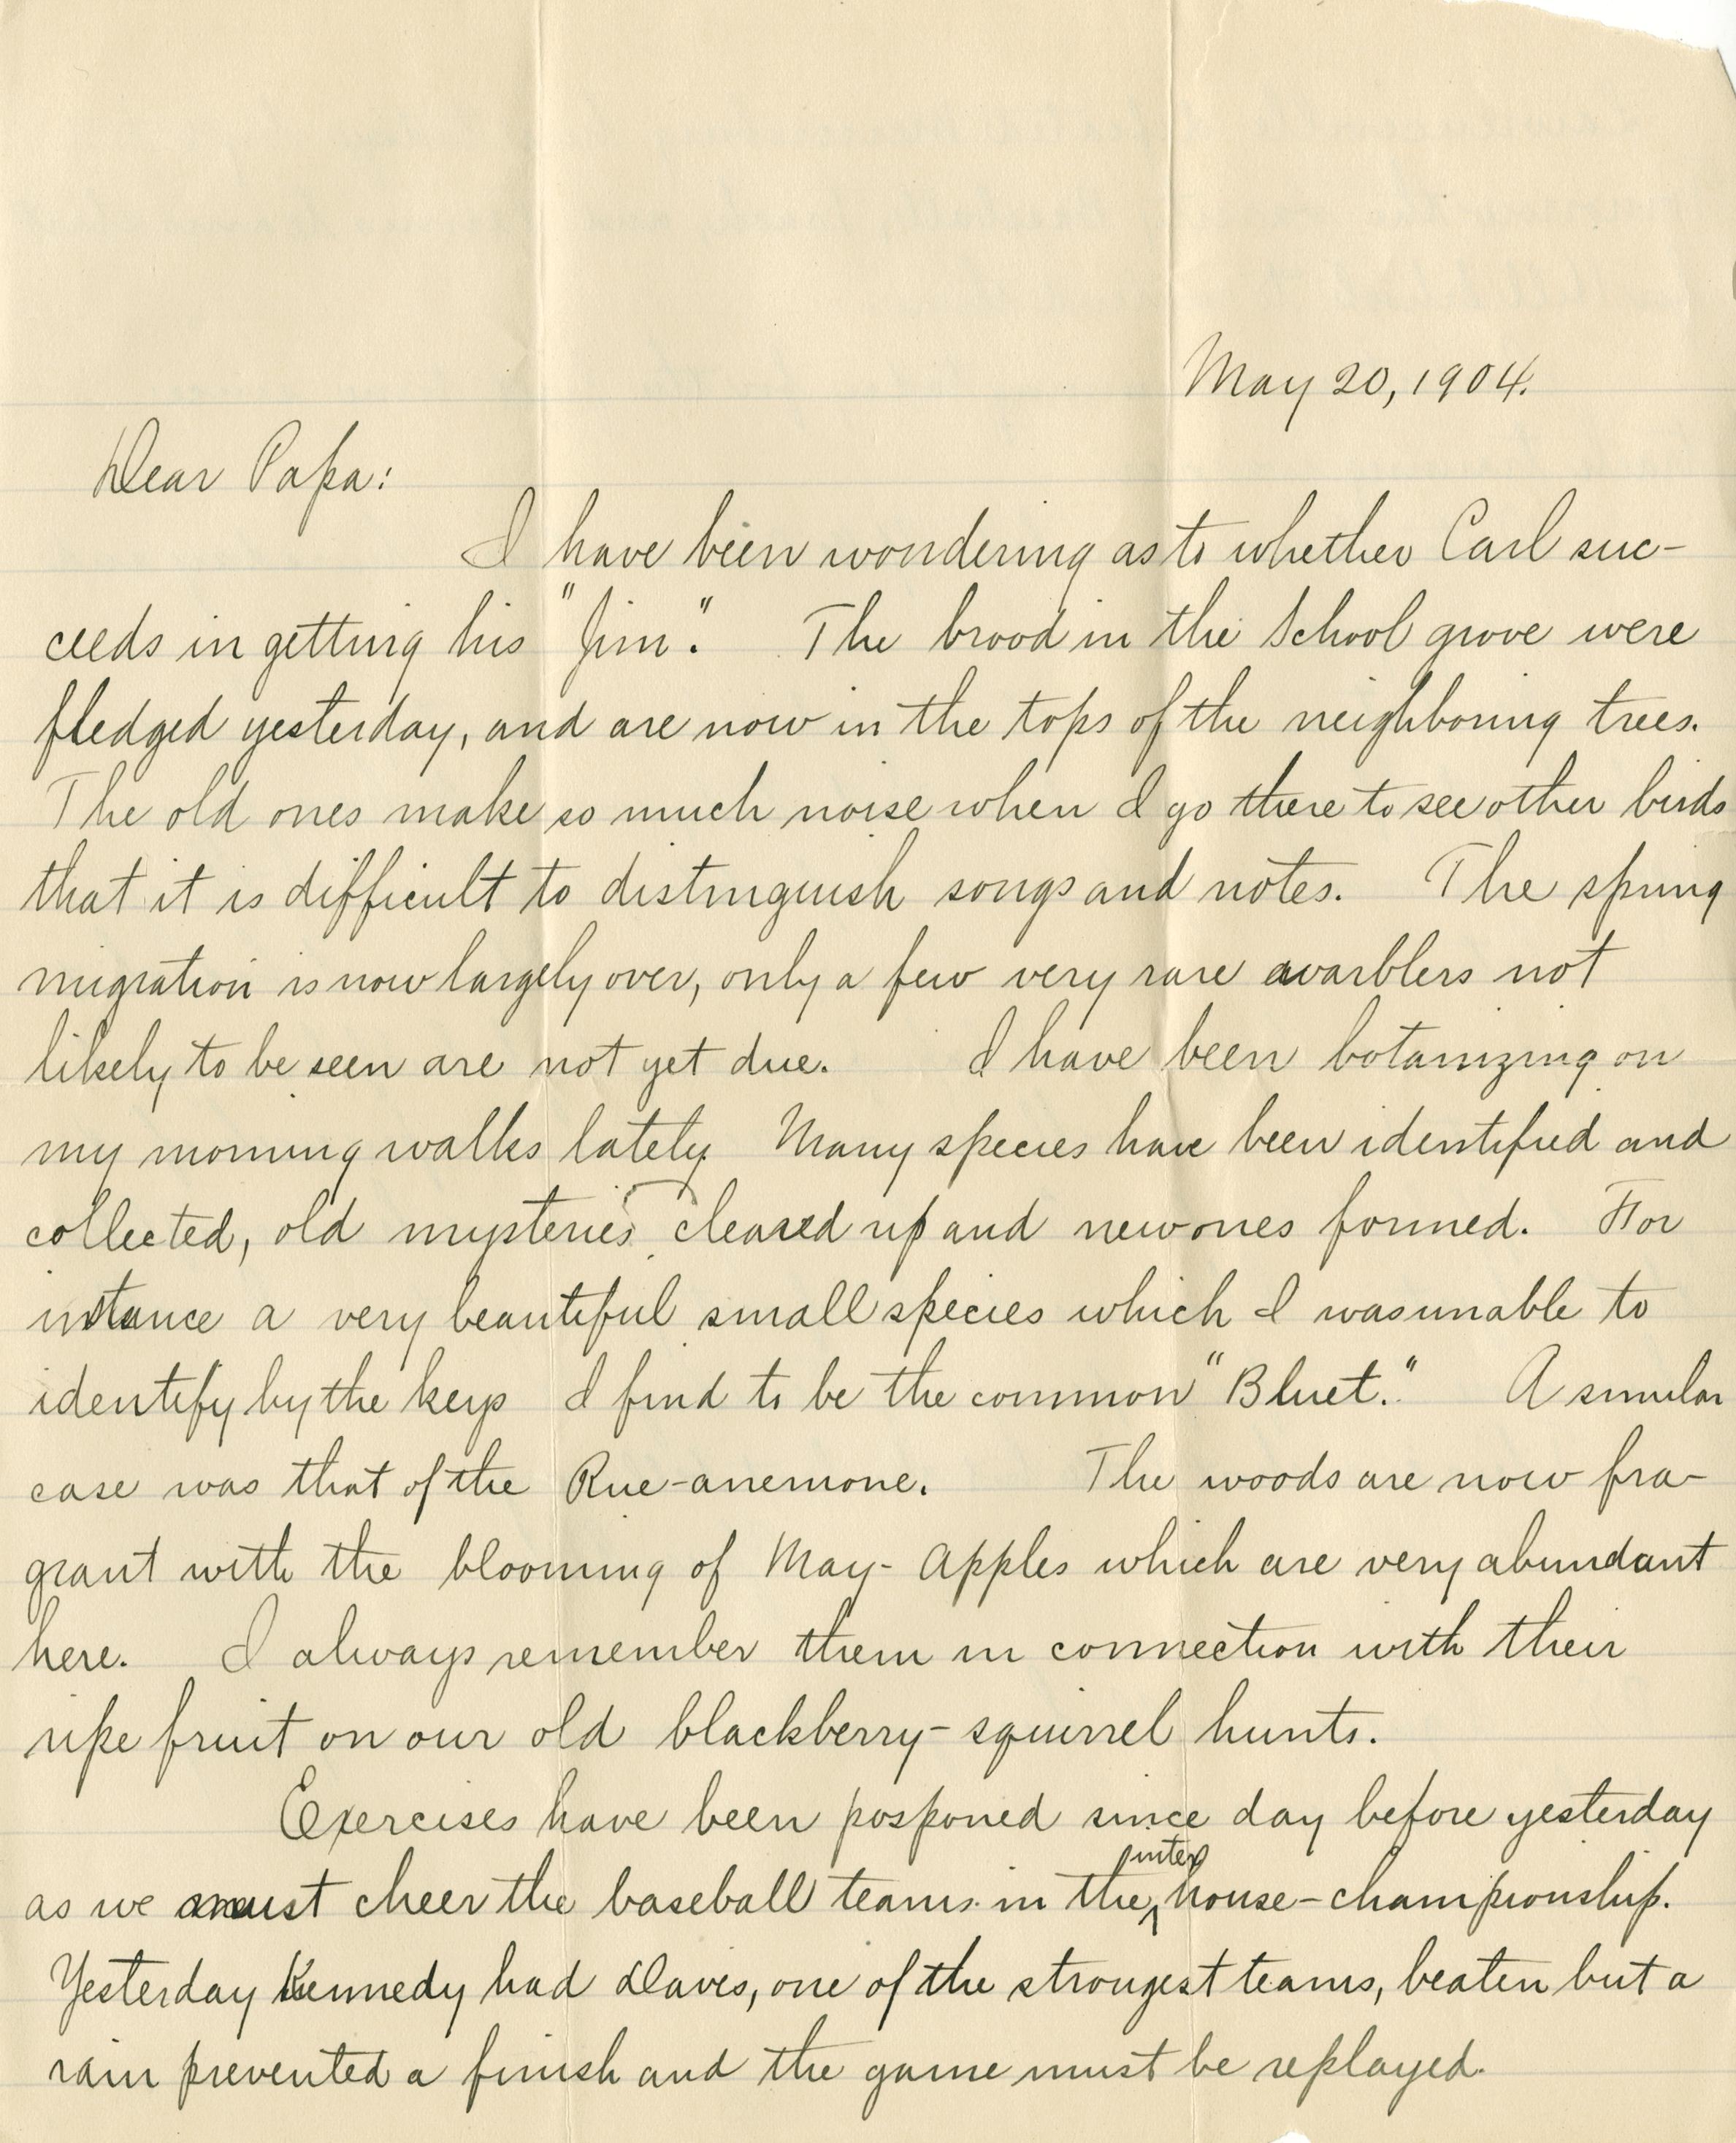 May 20, 1904.
Dear Papa:
I have been wondering as to whether Carl suc-
ceeds in getting his "Jim." The brood in the School grove were
fledged yesterday, and are now in the tops of the neighboring trees.
The old ones make so much noise when I go there to see other birds
that it is difficult to distinguish songs and notes. The spring
migration is now largely over, only a few very rare warblers not
likely to be seen are not yet due. I have been botanizing on
my morning walks lately. Many species have been identified and
collected, old mysteries cleared up and new ones formed. For
instance a very beautiful small species which I was unable to
identify by the keys I find to be the common "Bluet." A similar
case was that of the Rue-anemone. The woods are now fra-
grant with the blooming of May-Apples which are very abundant
here. I always remember them in connection with their
ripe fruit on our old blackberry-squirrel hunts.
Exercises have been posponed since day before yesterday
inter
as we must cheer the baseball teams in the house-championship.
Yesterday Kennedy had Davis, one of the strongest teams, beaten but a
rain prevented a finish and the game must be replayed.